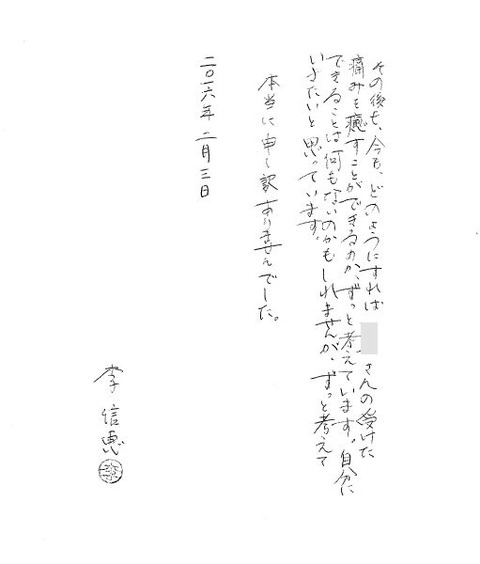 その後も、今も、どのようにすれば さんの受けた
痛みを癒すことができるのか、ずっと考えています。自分に
できることは何もないのかもしれませんが、ずっと考えて
いきたいと思っています。
本当に申し訳ありませんでした。
二〇一六年二月三日
李信恵